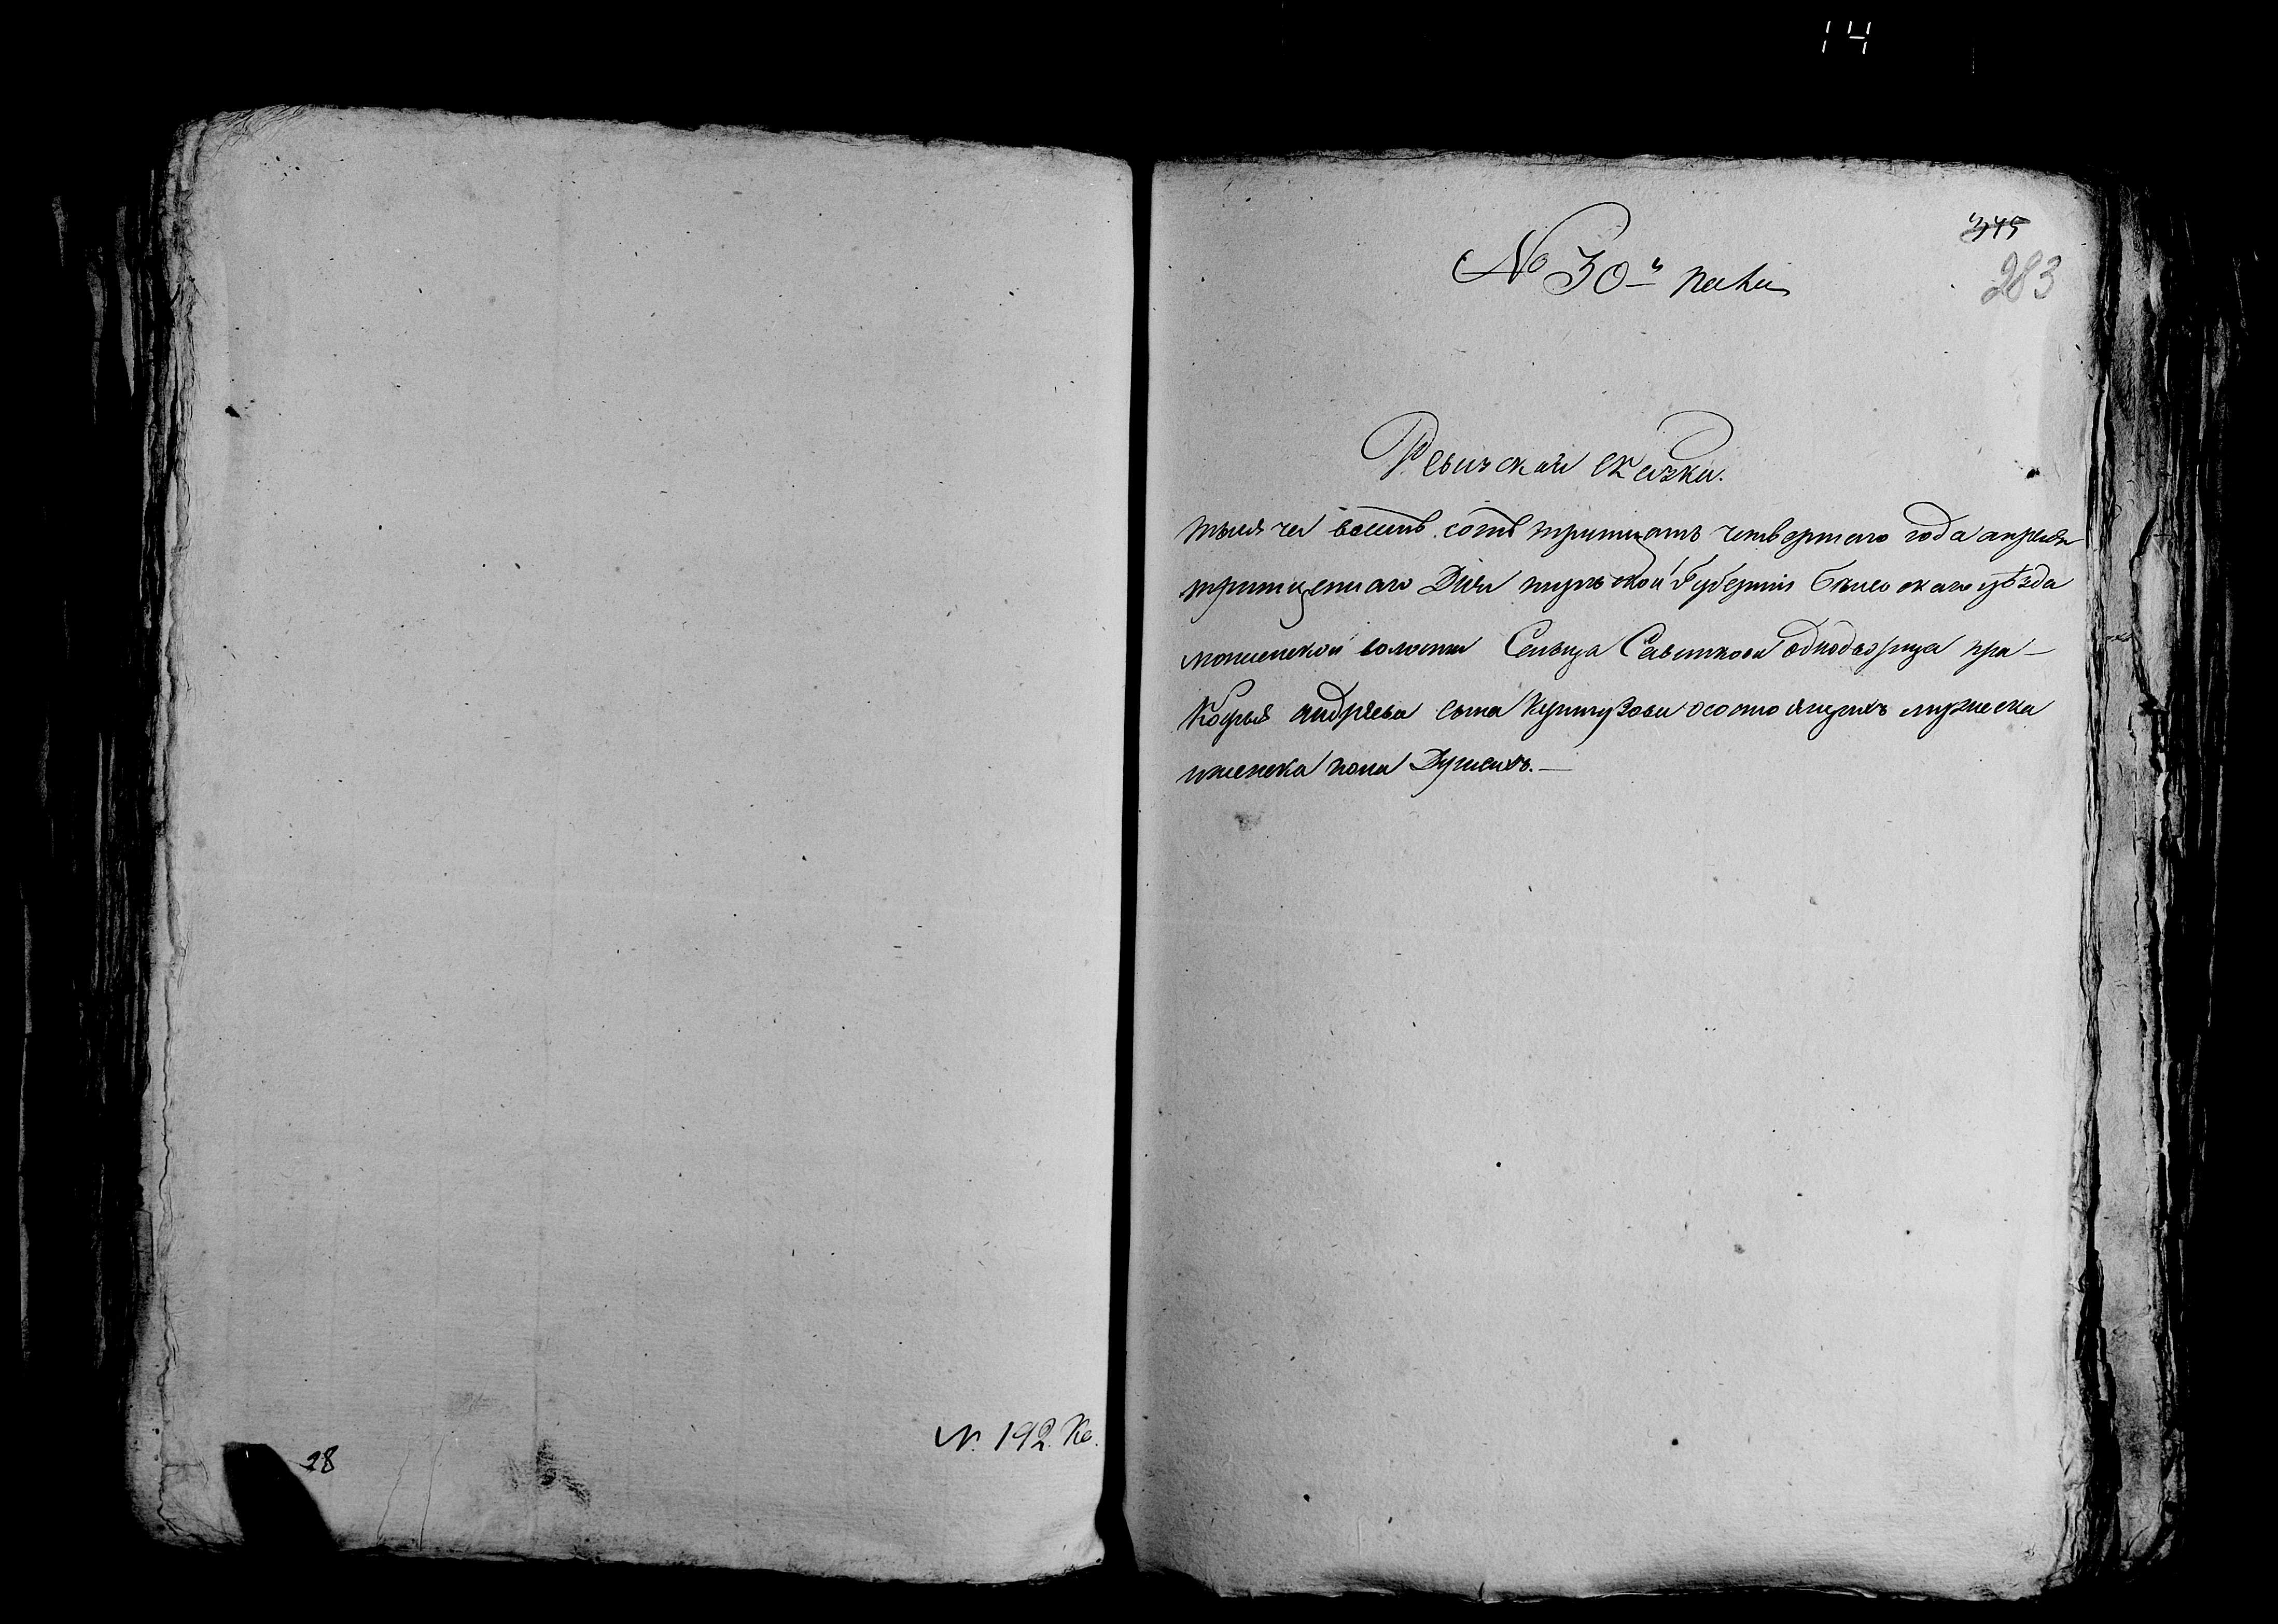 14
28
N. 192. Ко.
345
283
№ 30й
Ревизская сказка.
тысяча восемь сотъ тритцать четвертаго года апреля
тритцетаго Дня тульской Губерніи Бѣлевскаго уѣзда
монаенской волости Сельца Савинкова однодворца пра-
кофья андреева сына Кутузова осостоящихъ мужеска
иженска пола Душахъ.—